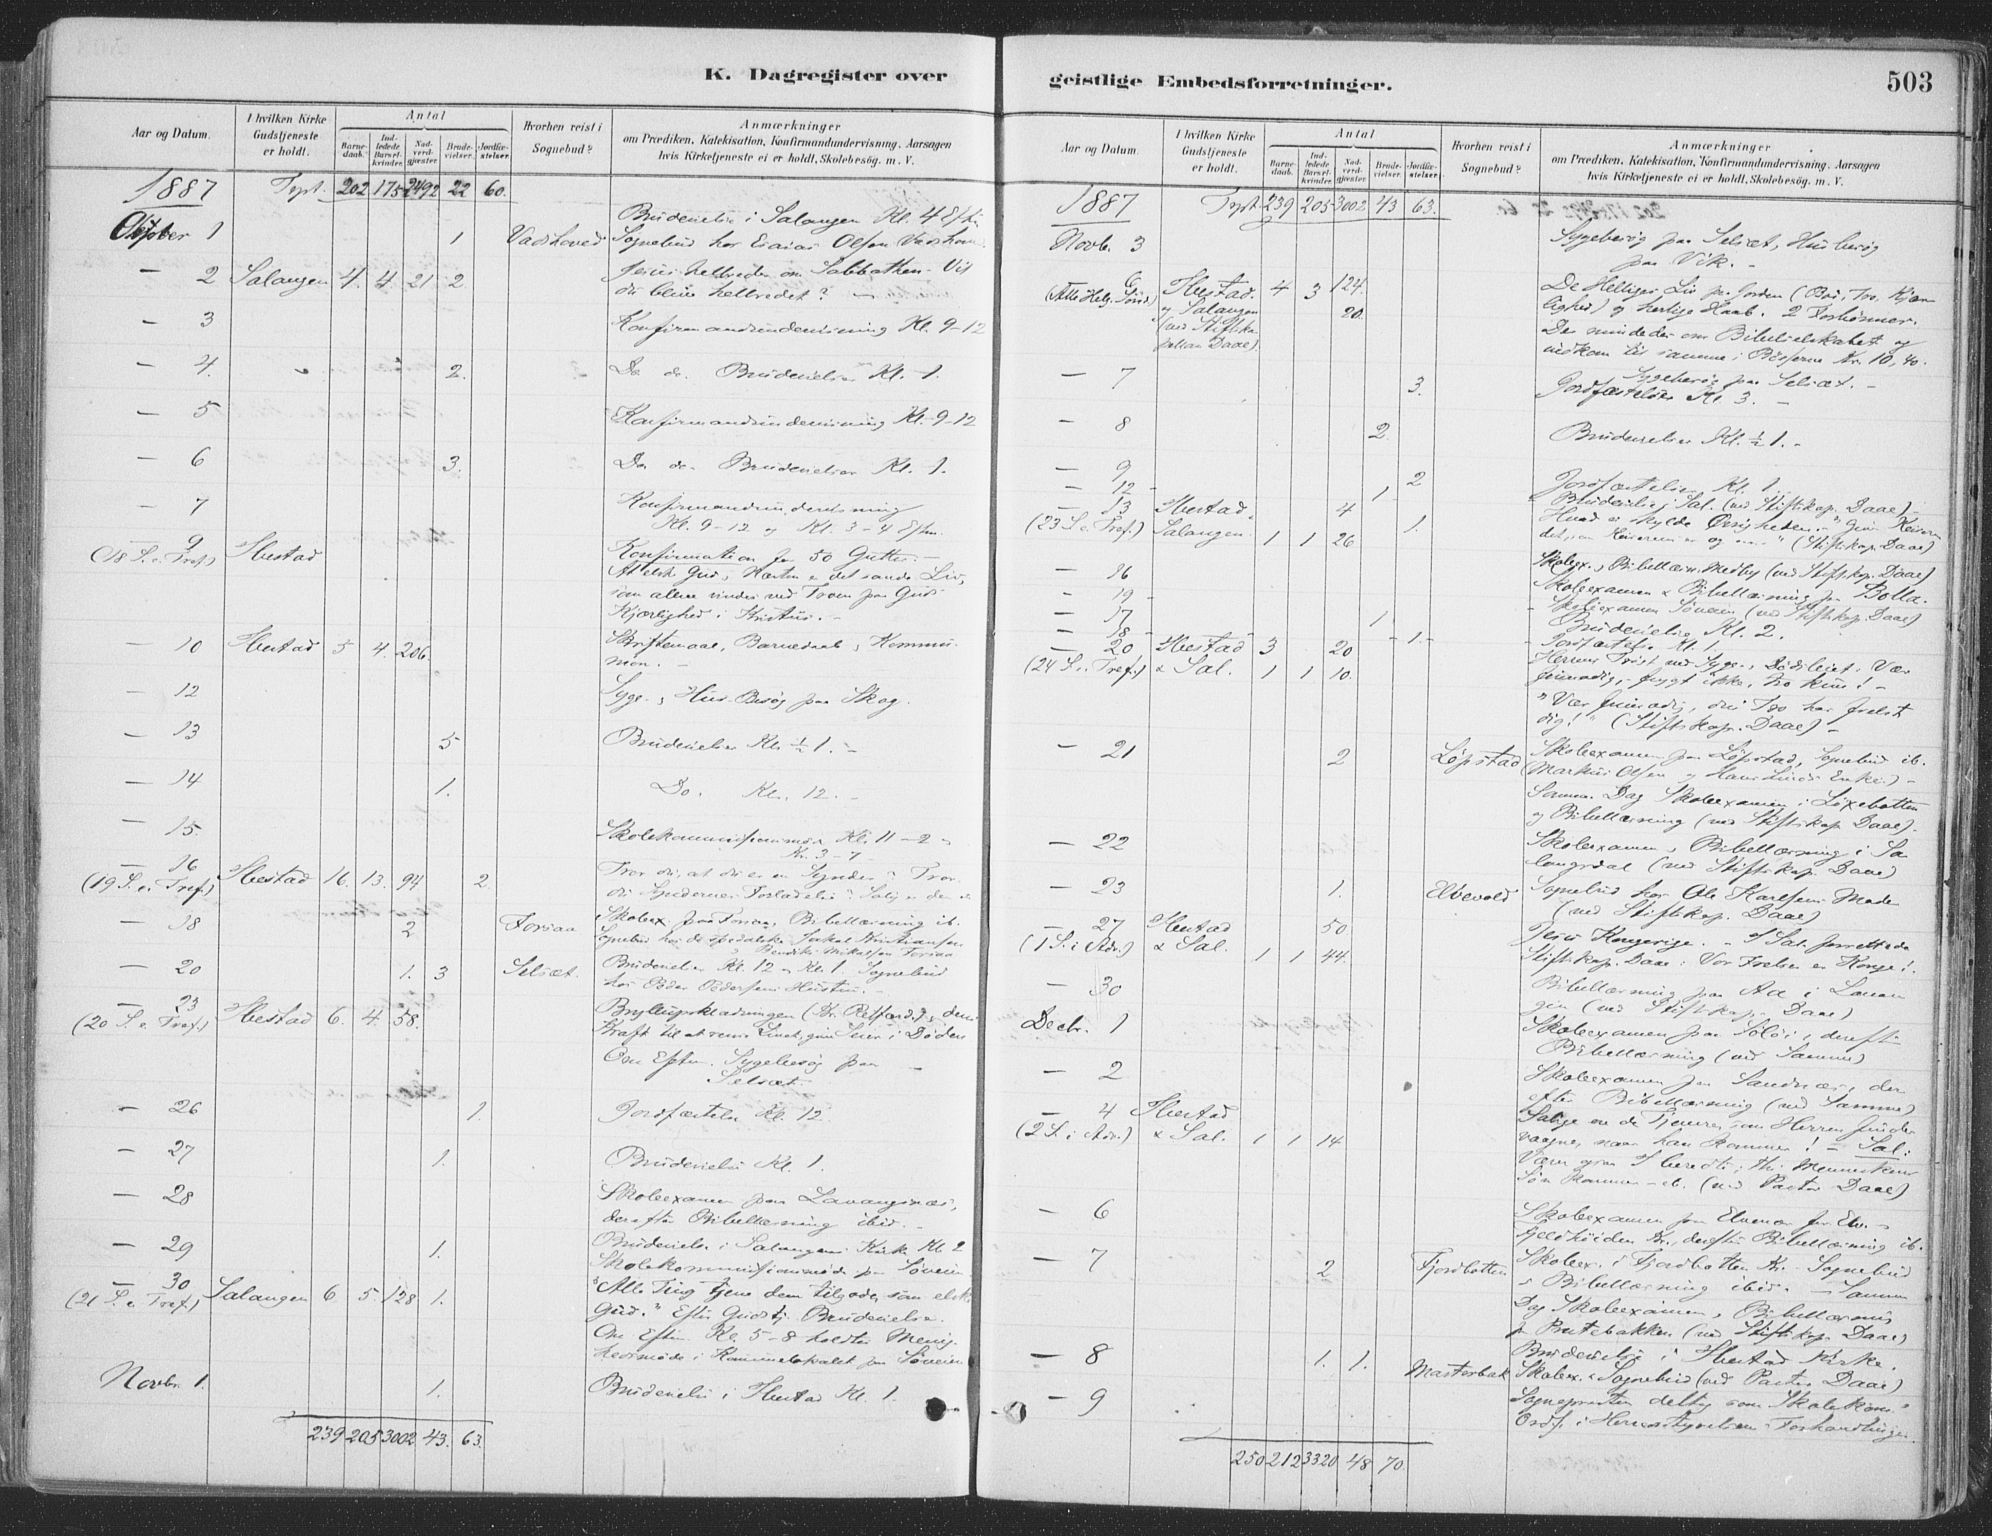 K. Dagregister over
Aar og Datum.
I hvilken Kirke
Gudstjeneste
er holdt.
Antal
Barne-
daab.
Ind-
ledede
Barsel-
kvinder.
Nad-
verd-
gjæster.
Brude-
vielser.
Jordfæ-
stelser.
Hvorhen reist i
Sognebud?
Anmærkninger
om Prædiken, Katekisation, Konfirmandundervisning, Aarsagen
hvis Kirketjeneste ei er holdt, Skolebesøg. m. V.
1887 Tspt. 202 175 2492 22 60.
Brudevielse i Salangen Kl. 4 Eftm.
Oktober 1 1 Vadshoved Sognebud hos Esaias Olsen
— 2 Salangen 4. 4. 21 2. Jesus helbreder om Sabbathen. Vil
du blive helbredet?
— 3 Konfirmandundervisning Kl. 9-12
— 4. 2. Do do. Brudevielser Kl. 1.
— 5 Konfirmandundervisning Kl. 9-12
— 6 3. Do do. Brudevielser Kl. 1.
— 7 Konfirmandundervisning
Kl. 9-12 og Kl. 3-4 Eftm.
— 9
(18 S. e. Tref.) Ibestad Konfirmation for 50 Gutter.
At elske Gud, Næsten e det sande Liv,
som alene vindes ved Troen paa Guds
Kjærlighed i Kristus.
— 10 Ibestad 5 4. 206. Skriftemaal, Barnedaab, Kommu-
nion. —
— 12 Syge-, Hus-Besøg paa Skog.
— 13 5 Brudevielser Kl. ½ 1. —
— 14 1. Do. Kl. 12. —
— 15. Skolekommissionsmøde Kl. 11-2 &
Kl. 3-7 —
— 16
(19 S. e. Tref.) Ibestad 16. 13. 94 2. Tror du, at du er en Synder? Tror
du Syndernes Forladelse? Salig er den
— 18 2 Forsaa Skoleex. paa Forsaa, Bibellæsning ib.
Sognebud hos de spedalske Kristiansen
Mikalsen Forsaa
— 20 1. 3 Selsæt. Brudevielser Kl. 12 & Kl. 1. Sognebud
hos Peder Pedersens Hustru. —
— 23
(20 S. e. Tref.) Ibestad 6. 4. 58. Bryllupsklædningen (Kr. Retfærd.), dens
Kraft til at give Seier i Døden
Om Eftm. Sygebesøg paa
Selsæt.
— 26 1. Jordfæstelse Kl. 12
— 27 1. Brudevielse Kl. 1.
— 28 Skoleexamen paa Lavangsnæs,
derefter Bibellæsning ibid. —
— 29 1. Brudevielse i Salangens Kirke Kl. 2
Skolekommissionsmøde paa Søveien
— 30
(21 S. e. Tref.) Salangen 6 5. 128. 1. "Alle Ting tjene dem tilgode, som elske
Gud." Efter Gudstj. Brudevielse.
Om Eftm. Kl. 5-8 holdtes Menig-
hedsmøde i Kommunelokalet paa Søveien
Novbr. 1. 1. Brudevielse i Ibestad Kl. 1.
239 205 3002 43. 63.
geistlige Embedsforretninger.
503
Aar og Datum.
I hvilken Kirke
Gudstjeneste
er holdt.
Antal
Barne-
daab.
Ind-
ledede
Barsel-
kvinder.
Nad-
verd-
gjæster.
Brude-
vielser.
Jordfæ-
stelser.
Hvorhen reist i
Sognebud?
Anmærkninger
om Prædiken, Katekisation, Konfirmandundervisning, Aarsagen
hvis Kirketjeneste ei er holdt, Skolebesøg. m. V.
1887 Tspt 239 205 3002 43 63.
Novb. 3 Sygebesøg paa Selsæt, Husbesøg
paa Vik. —
6
(Alle Helg. Sønd.) Ibestad. 4 3 124. De Helliges Liv paa Jorden (Tro, Kjær-
& Salangen 20. lighed) og herlige Haab.
(ved Stiftska- De mindedes om Bibelselskabet og
pellan Daae) indkom til samme i Bøsserne Kr. 10,40.
— 7 3. Sygebesøg paa Selsæt. —
Jordfæstelser Kl. 3. —
— 8 2. Brudevielser Kl. ½ 1. —
— 9 2 Jordfæstelser Kl. 1.
— 12 1 Brudevielse i Sal. (ved Stiftskap. Daae) —
— 13 Ibestad, 4 Hvad vi skylde Øvrigheden. "Giv Keiseren
(23 S. e. Tref.) Salangen. 1 1 26 1. det, som Keiserens er og (Stiftskap. Daae)
— 16 Skoleex., Bibellæsn. Medby (ved Stiftskap. Daae)
— 19 Skoleexamen & Bibellæsning paa Rolla.
— 17 1 Skoleexamen Søveien (ved Stiftskap. Daae)
— 18 1. Brudevielse Kl. 2.
— 20 Ibestad 3 20 Jordfæstelse Kl. 1.
(24 S. e. Tref.) & Sal. 1 1 10. Herrens Trøst ved Syge-, Dødsleiet: Vær
frimodig, frygt ikke, tro kun! —
"Vær frimodig, din Tro har frelst
dig!" (Stiftskap. Daae) —
— 21 2 Løpstad Skoleexamen paa Løpstad, Sognebud ib.
(Markus Olsen og Enke.) —
Samme Dag Skoleexamen i Løxebotten
og Bibellæsning (ved Stiftskap. Daae).
— 22 Skoleexamen, Bibellæsning i Sa-
langsdal (ved Stiftskap. Daae)
— 23 1. Elvevold Sognebud hos Ole Karlsen Moden
(ved Stiftskap. Daae)
— 27 Ibestad 50 Jesu Kongerige. — I Sal. forrettede
(1 S. i Adv.) & Sal. 1 1 44. Stiftskap. Daae: Vor Frelser en Konge!
— 30 Bibellæsning paa Aa i Lavan-
gen (ved Stiftskap. Daae)
Decbr. 1 Skoleexamen paa Soløi, derefter
Bibellæsning (ved Samme)
— 2 Skoleexamen paa Sandnæs, der-
efter Bibellæsning (ved Samme)
— 4 Ibestad Salige ere de Tjenere, som Herren finder
(2 S. i Adv.) & Sal. 1 1 14 vaagne, naar han kommer! — Sal:
Værer ogsaa I beredte; thi Menneskens
Søn kommer — (ved Pastor Daae)
— 6 Skoleexamen paa Elvenæs for Elve- &
Kr., derefter Bibellæsning ib.
— 7 2 Fjordbotten Skoleex. i Fjordbotten Kr. Sognebud
& Bibellæsning ibid. — Samme
Dag Skoleexamen, Bibellæsning
paa Brutebakken (ved Stiftskap. Daae)
— 8 1. 1. Brudevielse i Ibestad Kirke.
Masterbak Skoleex. & Sognebud (ved Pastor Daae)
— 9 Sognepresten deltog som Skolekom.
Ordf. i Herredsstyrelsens Forhandlinger.
250 212 3320 48 70.